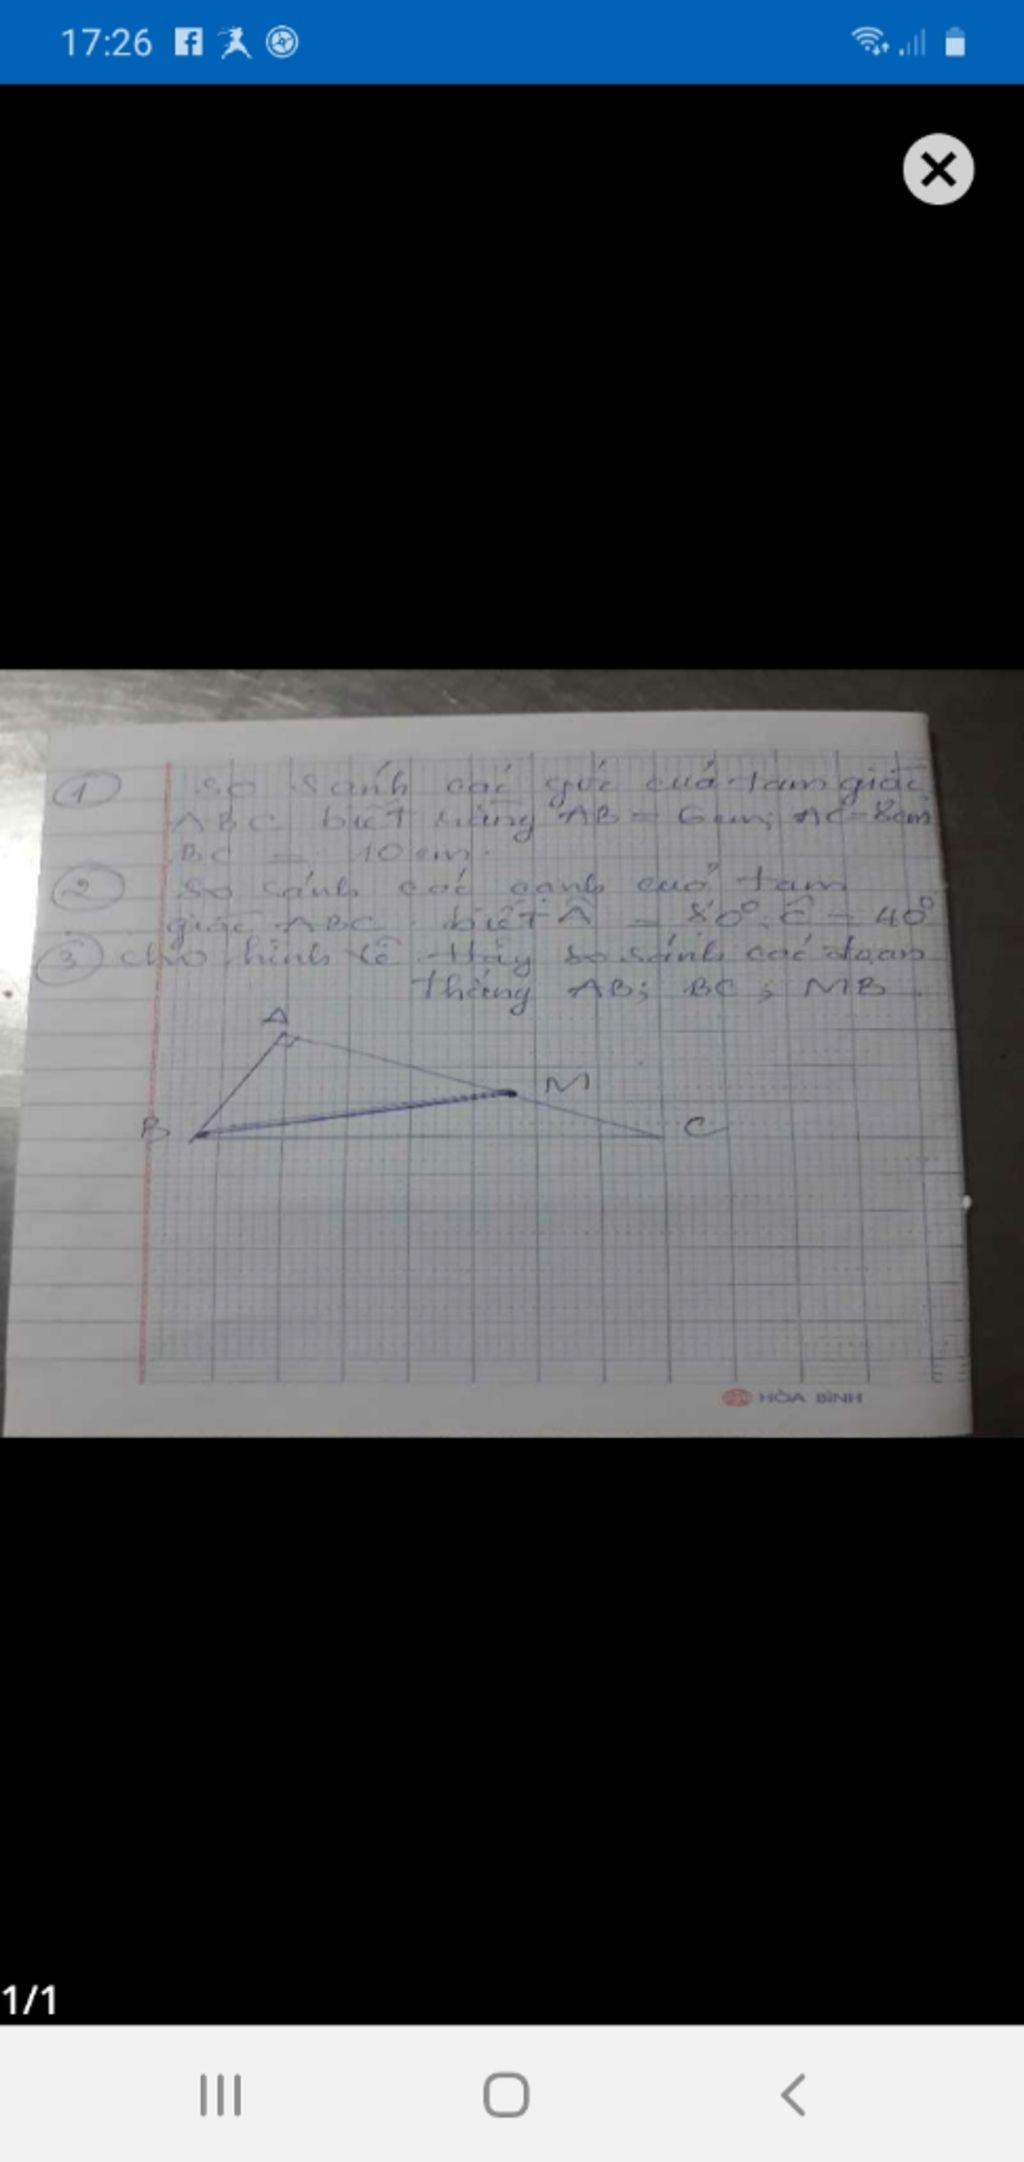 17:26
① so sánh các góc của tam giác
ABC biết rằng AB = 6cm; AC = 8cm
BC = 10 cm.
② so sánh các cạnh của tam
giác ABC biết Â = 80°; Ĉ = 40°
③ cho hình vẽ. Hãy so sánh các đoạn
thẳng AB; BC; MB
A
M
B
C
HÒA BÌNH
1/1